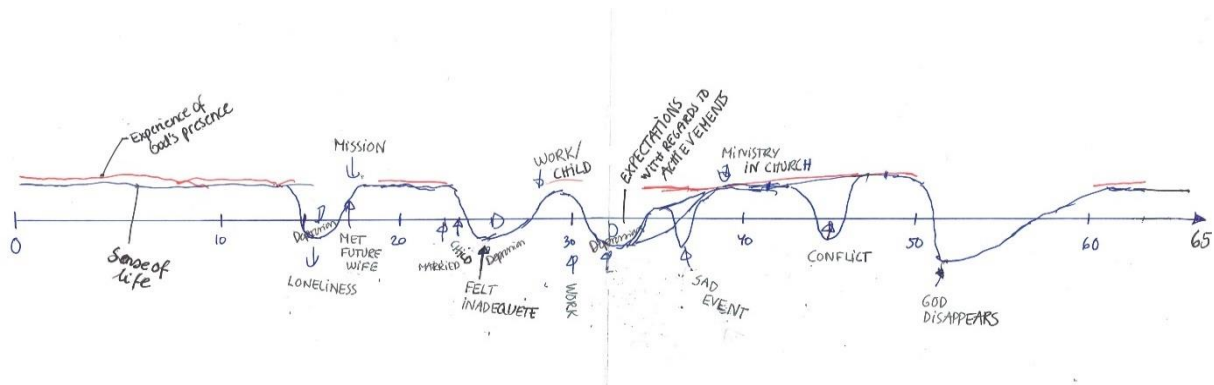 Experience of
God's presence
MISSION
WORK/
CHILD
EXPECTATIONS
WITH REGARDS TO
ACHIEVEMENTS
MINISTRY
IN CHURCH
D
D
D
0
10
20
30
40
50
60
65
Sense of
life
Depression
LONELINESS
MET
FUTURE
WIFE
MARRIED
CHILD
Depression
FELT
INADEQUETE
WORK
Depression
SAD
EVENT
CONFLICT
GOD
DISAPPEARS